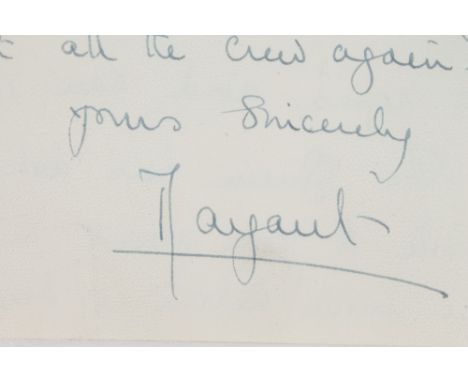 all the crew again
yours Sincerely
Margaret